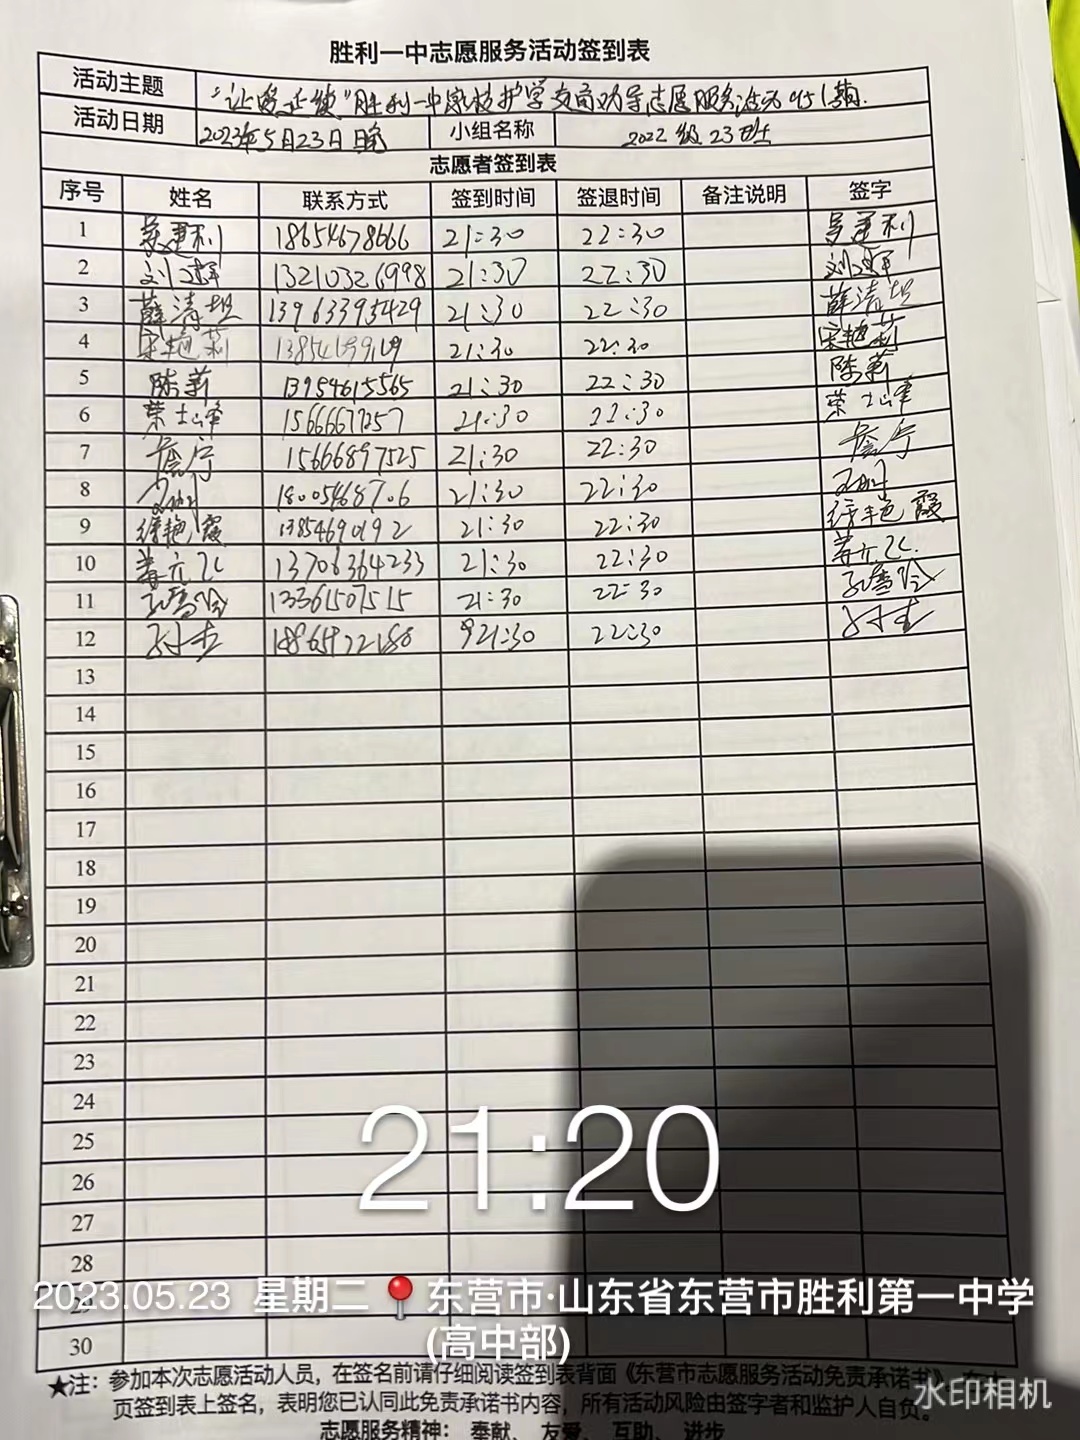 胜利一中志愿服务活动签到表
活动主题 "让爱延续"胜利一中家校护学交通劝导志愿服务活动 期.
活动日期 2023年5月23日晚 小组名称 2022级23班
志愿者签到表
序号 姓名 联系方式 签到时间 签退时间 备注说明 签字
1 吴建利 18654678666 21:30 22:30 吴建利
2 刘 辉 13210326998 21:30 22:30 刘 辉
3 薛清坦 13963395429 21:30 22:30 薛清坦
4 宋艳莉 21:30 22:30 宋艳莉
5 陈莉 13954615565 21:30 22:30 陈莉
6 荣士峰 15666617257 21:30 22:30 荣士峰
7 詹宁 15666897525 21:30 22:30 詹宁
8 18005468706 21:30 22:30
9 徐艳霞 13854690192 21:30 22:30 徐艳霞
10 13706364233 21:30 22:30
11 13361507515 21:30 22:30
12 21:30 22:30
13
14
15
16
17
18
19
20
21
22
23
24
25
26
27
28
29
30
21:20
2023.05.23 星期二 东营市·山东省东营市胜利第一中学
(高中部)
★注：参加本次志愿活动人员，在签名前请仔细阅读签到表背面《东营市志愿服务活动免责承诺书》，在
页签到表上签名，表明您已认同此免责承诺书内容，所有活动风险由签字者和监护人自负。
水印相机
志愿服务精神： 奉献、 友爱、 互助、 进步